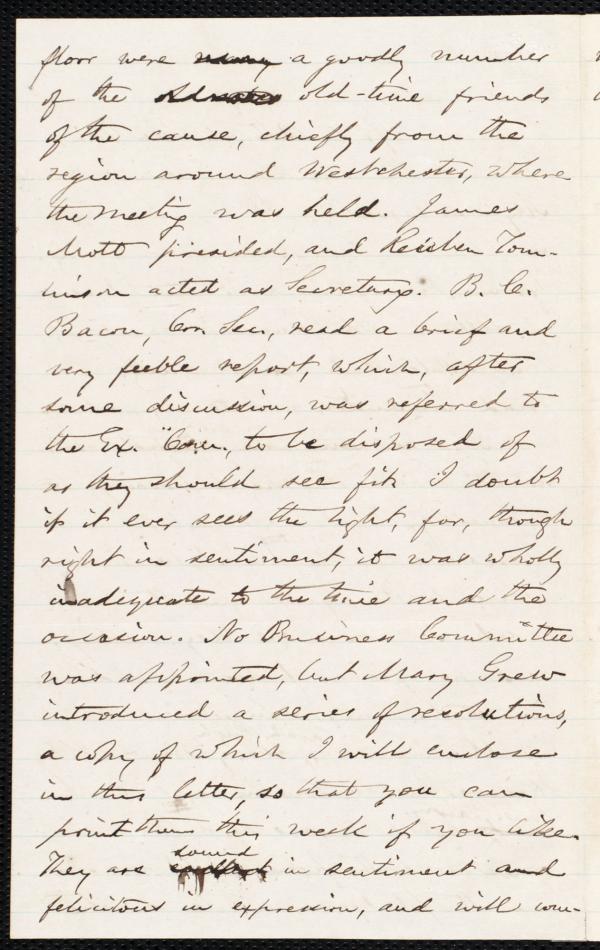 floor were many a goodly number
of the old-time friends
of the cause, chiefly from the
region around Westchester, where
the meeting was held. James
Mott presided, and Reuben Tom-
linson acted as Secretary. B. C.
Bacon, Cor. Sec., read a brief and
very feeble report, which, after
some discussion, was referred to
the Ex. Com., to be disposed of
as they should see fit. I doubt
if it ever sees the light, for, though
right in sentiment, it was wholly
inadequate to the time and the
occasion. No Business Committee
was appointed, but Mary Grew
introduced a series of resolutions,
a copy of which I will enclose
in this letter, so that you can
print them this week if you like.
They are sound in sentiment and
felicitous in expression, and will com-